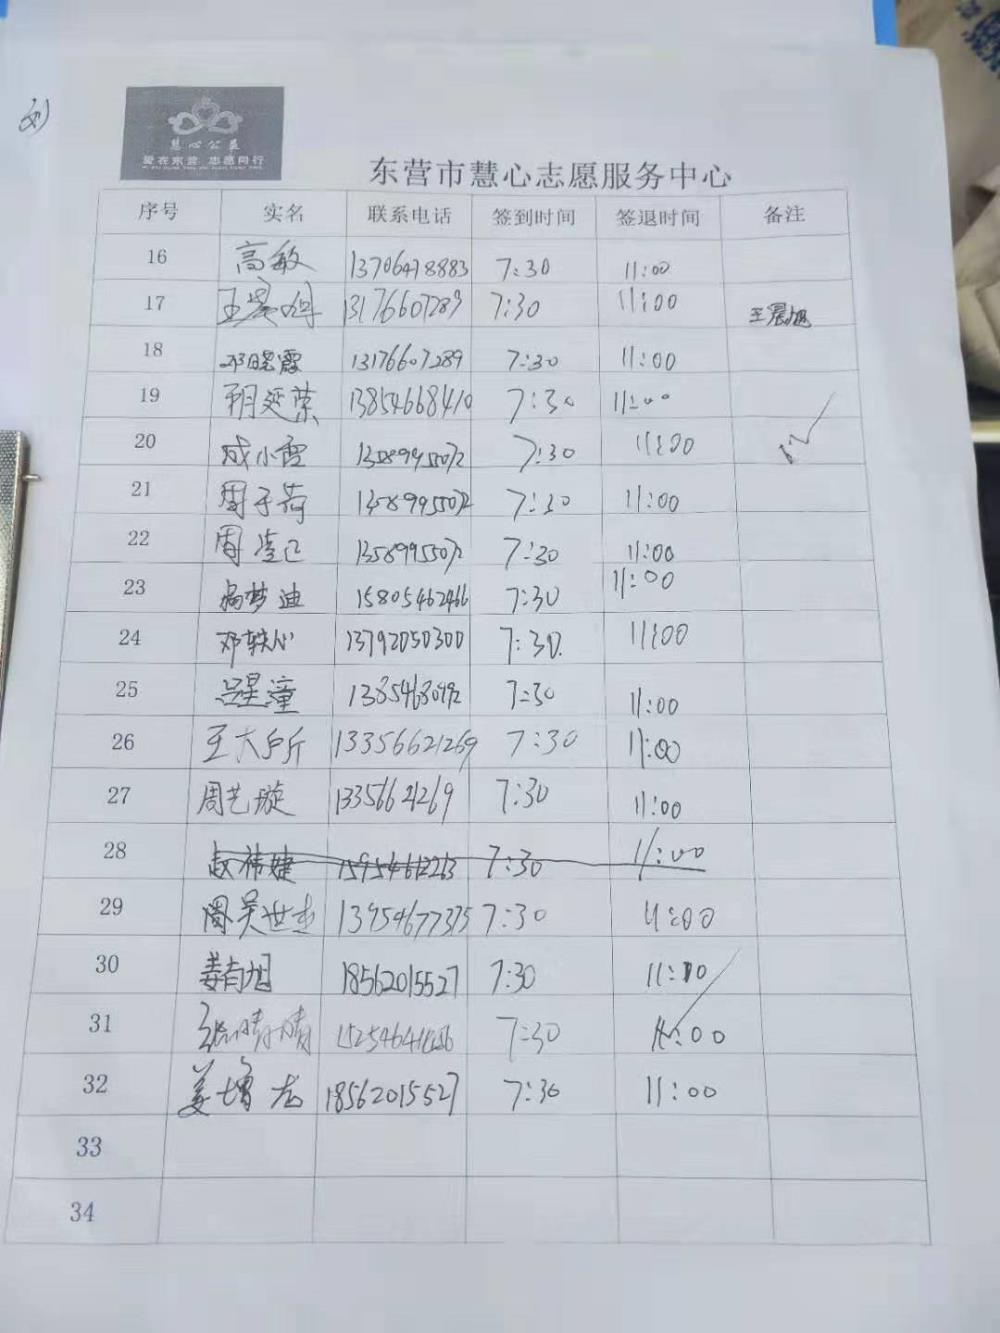 慧心公益
爱在东营 志愿同行
东营市慧心志愿服务中心
序号 实名 联系电话 签到时间 签退时间 备注
16 高敏 13706478883 7:30 11:00
17 13176607289 7:30 11:00 王晨旭
18 邓晓霞 13176607289 7:30 11:00
19 13854668410 7:30 11:00
20 成小雪 13589955072 7:30 11:00
21 周子荷 13589955072 7:30 11:00
22 周 13589955072 7:30 11:00
23 杨梦迪 15805462466 7:30 11:00
24 邓轶心 13792050300 7:30. 11:00
25 吕星潼 7:30 11:00
26 王大户斤 13356621269 7:30 11:00
27 周艺璇 13356621269 7:30 11:00
28 赵祎婕 15954612263 7:30 11:00
29 周吴世杰 13954677375 7:30 11:00
30 姜尚旭 18562015527 7:30 11:10
31 张晴晴 7:30 11:00
32 姜增龙 18562015527 7:30 11:00
33
34